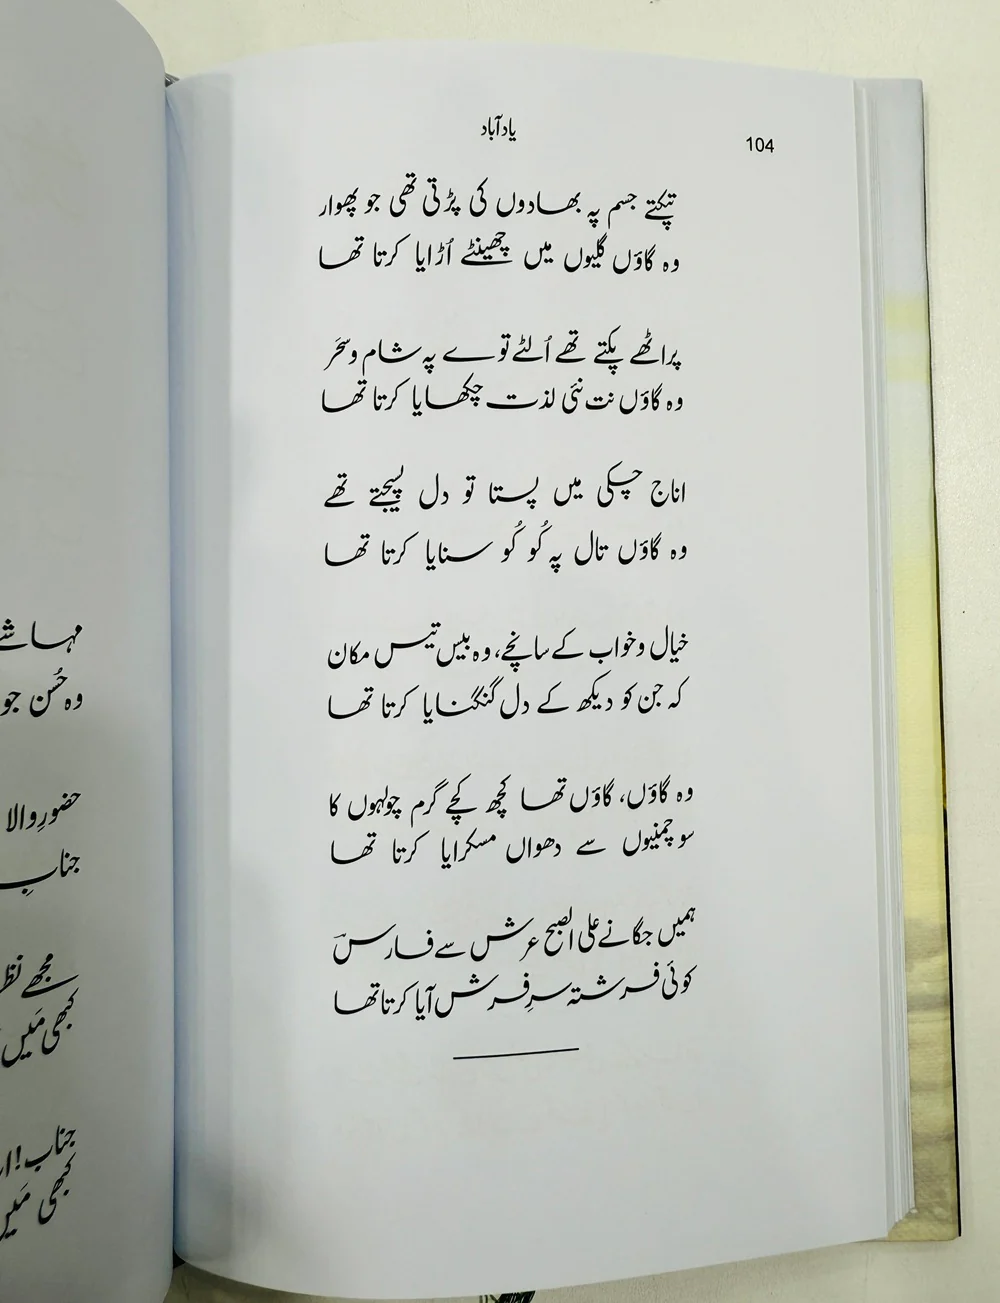 یادآباد
104
تپکتے جسم پہ بھادوں کی پڑتی تھی جو پھوار
وہ گاؤں گلیوں میں چھینٹے اُڑایا کرتا تھا
پراٹھے پکتے تھے اُلٹے توے پہ شام و سحَر
وہ گاؤں نت نئی لذت چکھایا کرتا تھا
اناج چکی میں پستا تو دل پسیجتے تھے
وہ گاؤں تال پہ کُو کُو سنایا کرتا تھا
خیال و خواب کے سانچے، وہ بیس تیس مکان
کہ جن کو دیکھ کے دل گنگنایا کرتا تھا
وہ گاؤں، گاؤں تھا کچھ کچے گرم چولہوں کا
سو چمنیوں سے دھواں مسکرایا کرتا تھا
ہمیں جگانے علی الصبح عرش سے فارسؔ
کوئی فرشتہ سرِ فرش آیا کرتا تھا
وہ حُسن جو
حضورِ والا
جنابِ
مجھے
کبھی مَیں
جناب!
کبھی مَیں